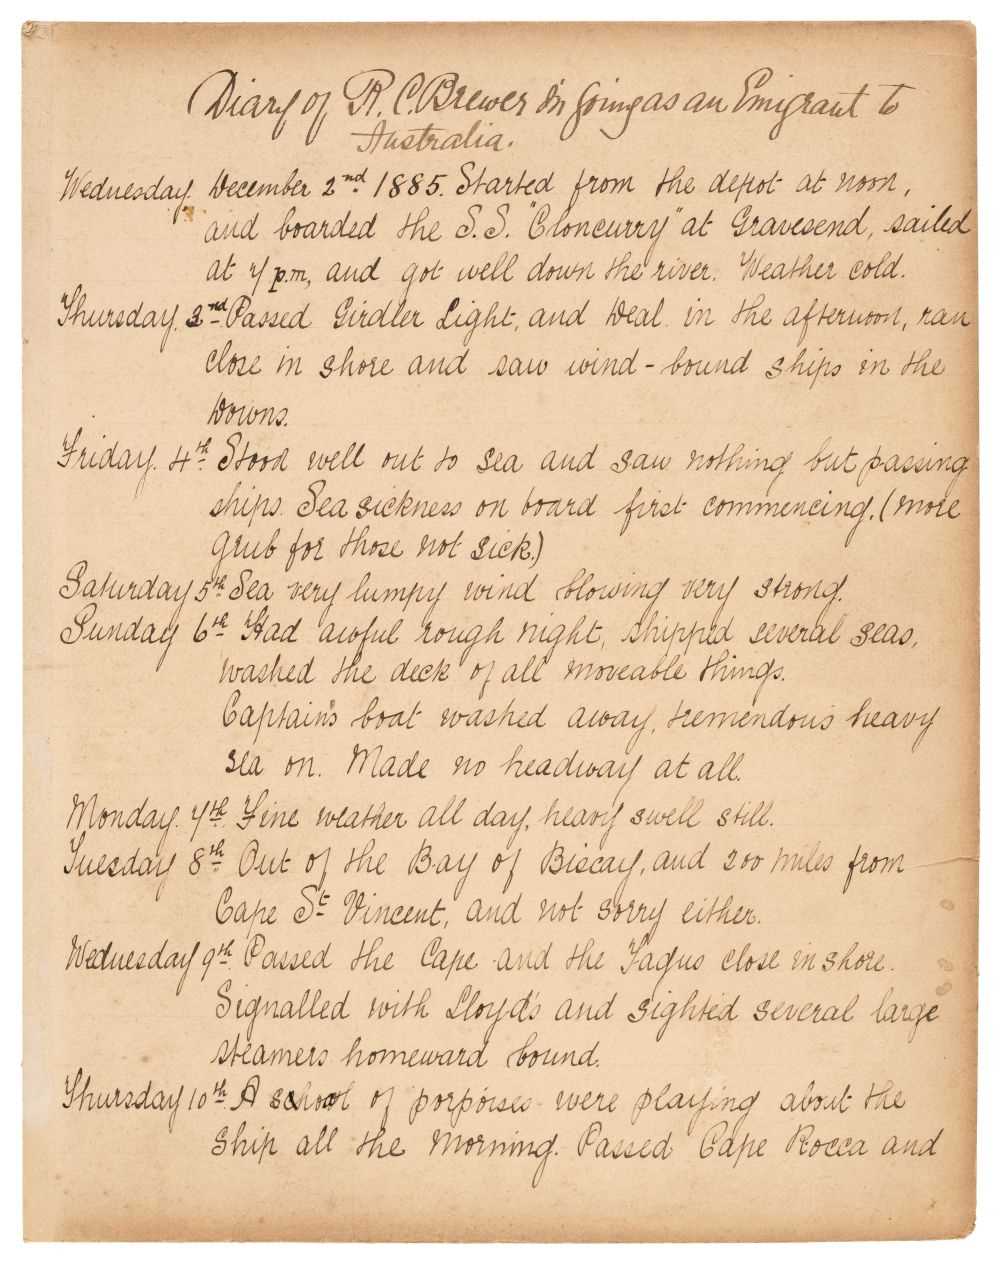 Diary of R. C. Brewer in Going as an Emigrant to
Australia.
Wednesday. December 2nd 1885. Started from the depot at noon,
and boarded the S.S. "Cloncurry" at Gravesend, sailed
at 7 p.m, and got well down the river. Weather cold.
Thursday. 3nd Passed Girdler Light, and Deal in the afternoon, ran
close in shore and saw wind-bound ships in the
Downs.
Friday. 4th Stood well out to sea and saw nothing but passing
ships. Sea sickness on board first commencing. (more
grub for those not sick.)
Saturday 5th Sea very lumpy wind blowing very strong.
Sunday 6th Had awful rough night, shipped several seas,
washed the deck of all moveable things.
Captain's boat washed away, tremendous heavy
sea on. Made no headway at all.
Monday. 7th Fine weather all day, heavy swell still.
Tuesday 8th Out of the Bay of Biscay, and 200 miles from
Cape St Vincent, and not sorry either.
Wednesday 9th Passed the Cape and the Tagus close in shore.
Signalled with Lloyd's and sighted several large
steamers homeward bound.
Thursday 10th A school of porpoises were playing about the
ship all the morning. Passed Cape Rocca and